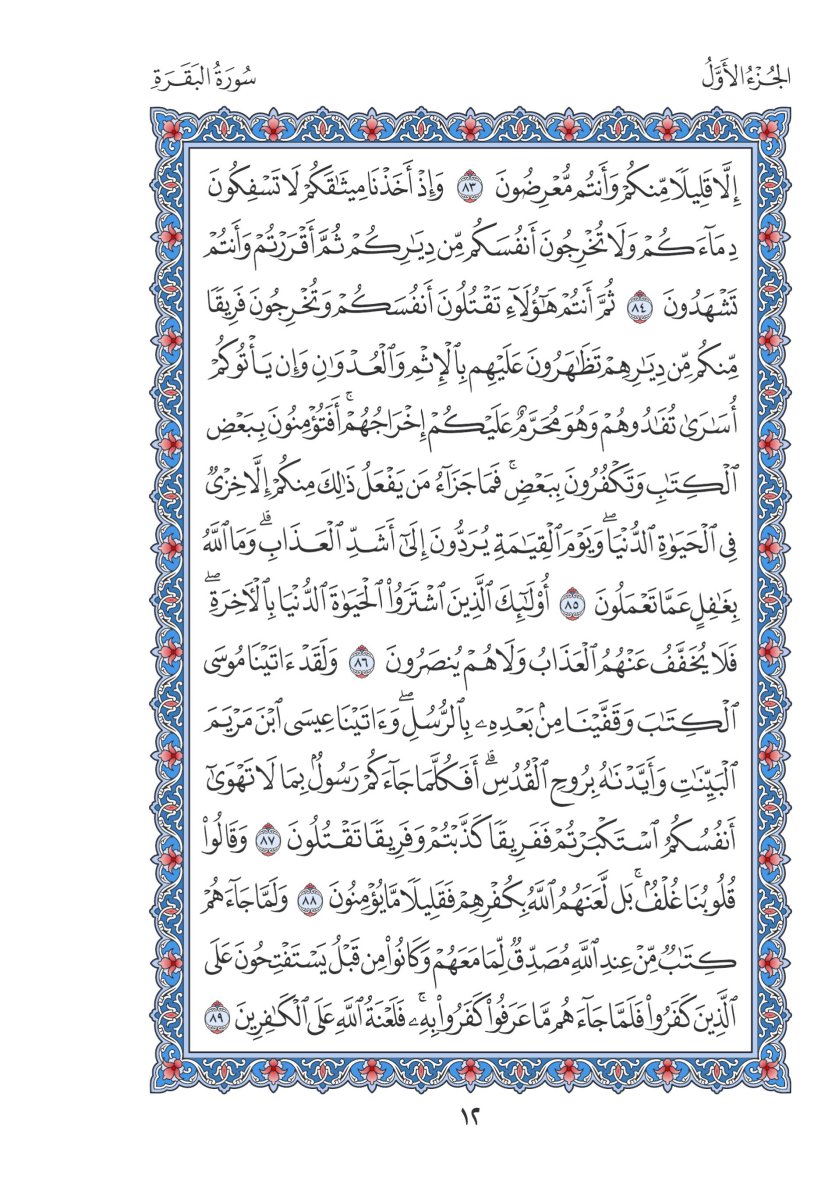 الجُزْءُ الأَوَّلُ
سُورَةُ البَقَرَةِ
إِلَّا قَلِيلًا مِّنكُمْ وَأَنتُم مُّعْرِضُونَ ٨٣ وَإِذْ أَخَذْنَا مِيثَٰقَكُمْ لَا تَسْفِكُونَ
دِمَآءَكُمْ وَلَا تُخْرِجُونَ أَنفُسَكُم مِّن دِيَٰرِكُمْ ثُمَّ أَقْرَرْتُمْ وَأَنتُمْ
تَشْهَدُونَ ٨٤ ثُمَّ أَنتُمْ هَٰٓؤُلَآءِ تَقْتُلُونَ أَنفُسَكُمْ وَتُخْرِجُونَ فَرِيقًا
مِّنكُم مِّن دِيَٰرِهِمْ تَظَٰهَرُونَ عَلَيْهِم بِٱلْإِثْمِ وَٱلْعُدْوَٰنِ وَإِن يَأْتُوكُمْ
أُسَٰرَىٰ تُفَٰدُوهُمْ وَهُوَ مُحَرَّمٌ عَلَيْكُمْ إِخْرَاجُهُمْ ۚ أَفَتُؤْمِنُونَ بِبَعْضِ
ٱلْكِتَٰبِ وَتَكْفُرُونَ بِبَعْضٍ ۚ فَمَا جَزَآءُ مَن يَفْعَلُ ذَٰلِكَ مِنكُمْ إِلَّا خِزْىٌ
فِى ٱلْحَيَوٰةِ ٱلدُّنْيَا ۖ وَيَوْمَ ٱلْقِيَٰمَةِ يُرَدُّونَ إِلَىٰٓ أَشَدِّ ٱلْعَذَابِ ۗ وَمَا ٱللَّهُ
بِغَٰفِلٍ عَمَّا تَعْمَلُونَ ٨٥ أُو۟لَٰٓئِكَ ٱلَّذِينَ ٱشْتَرَوُا۟ ٱلْحَيَوٰةَ ٱلدُّنْيَا بِٱلْءَاخِرَةِ ۖ
فَلَا يُخَفَّفُ عَنْهُمُ ٱلْعَذَابُ وَلَا هُمْ يُنصَرُونَ ٨٦ وَلَقَدْ ءَاتَيْنَا مُوسَى
ٱلْكِتَٰبَ وَقَفَّيْنَا مِنۢ بَعْدِهِۦ بِٱلرُّسُلِ ۖ وَءَاتَيْنَا عِيسَى ٱبْنَ مَرْيَمَ
ٱلْبَيِّنَٰتِ وَأَيَّدْنَٰهُ بِرُوحِ ٱلْقُدُسِ ۗ أَفَكُلَّمَا جَآءَكُمْ رَسُولٌۢ بِمَا لَا تَهْوَىٰٓ
أَنفُسُكُمُ ٱسْتَكْبَرْتُمْ فَفَرِيقًا كَذَّبْتُمْ وَفَرِيقًا تَقْتُلُونَ ٨٧ وَقَالُوا۟
قُلُوبُنَا غُلْفٌۢ ۚ بَل لَّعَنَهُمُ ٱللَّهُ بِكُفْرِهِمْ فَقَلِيلًا مَّا يُؤْمِنُونَ ٨٨ وَلَمَّا جَآءَهُمْ
كِتَٰبٌ مِّنْ عِندِ ٱللَّهِ مُصَدِّقٌ لِّمَا مَعَهُمْ وَكَانُوا۟ مِن قَبْلُ يَسْتَفْتِحُونَ عَلَى
ٱلَّذِينَ كَفَرُوا۟ فَلَمَّا جَآءَهُم مَّا عَرَفُوا۟ كَفَرُوا۟ بِهِۦ ۚ فَلَعْنَةُ ٱللَّهِ عَلَى ٱلْكَٰفِرِينَ ٨٩
١٢